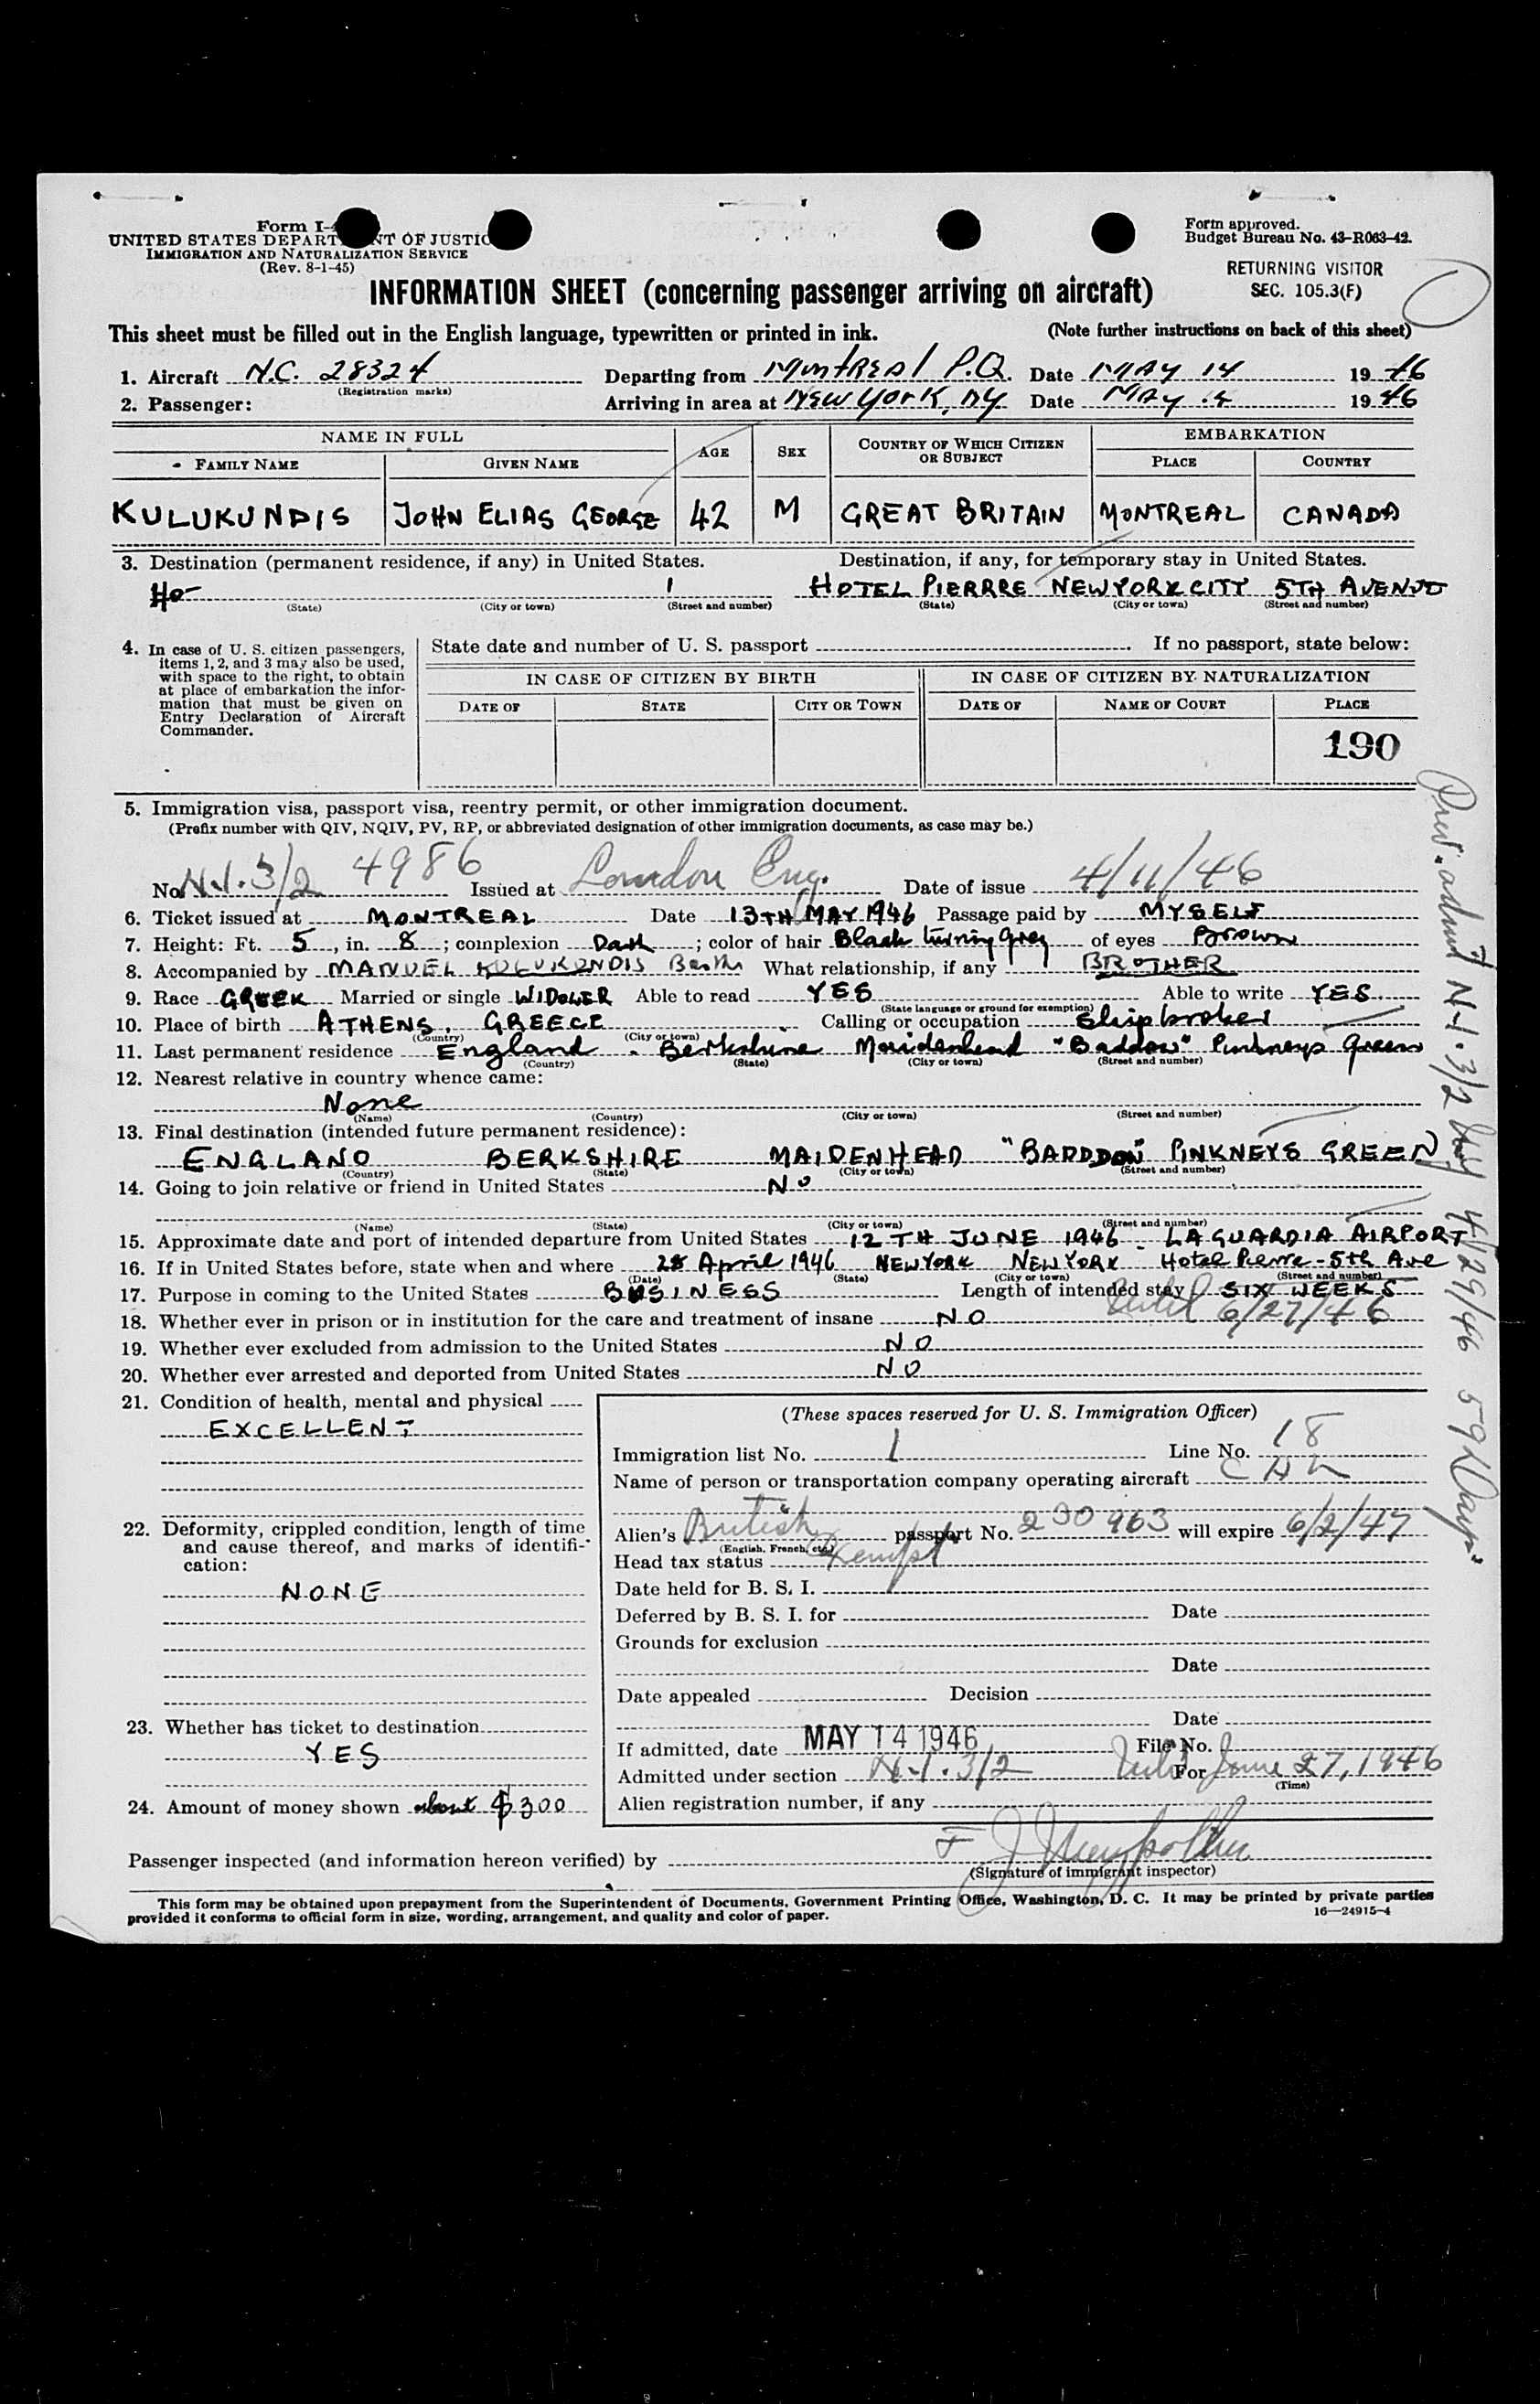 Form I-
UNITED STATES DEPART NT OF JUSTIC
IMMIGRATION AND NATURALIZATION SERVICE
(Rev. 8-1-45)
Form approved.
Budget Bureau No. 43-R063-42.
RETURNING VISITOR
SEC. 105.3(F)
INFORMATION SHEET (concerning passenger arriving on aircraft)
This sheet must be filled out in the English language, typewritten or printed in ink. (Note further instructions on back of this sheet)
1. Aircraft N.C. 28324 Departing from Montreal P.Q. Date MAY 14 1946
(Registration marks)
2. Passenger: Arriving in area at New York, NY Date MAY 1946
NAME IN FULL AGE SEX COUNTRY OF WHICH CITIZEN OR SUBJECT EMBARKATION
FAMILY NAME GIVEN NAME PLACE COUNTRY
KULUKUNDIS JOHN ELIAS GEORGE 42 M GREAT BRITAIN MONTREAL CANADA
3. Destination (permanent residence, if any) in United States. Destination, if any, for temporary stay in United States.
Ho HOTEL PIERRRE NEW YORK CITY 5TH AVENUE
(State) (City or town) (Street and number) (State) (City or town) (Street and number)
4. In case of U. S. citizen passengers, items 1, 2, and 3 may also be used, with space to the right, to obtain at place of embarkation the information that must be given on Entry Declaration of Aircraft Commander.
State date and number of U. S. passport If no passport, state below:
IN CASE OF CITIZEN BY BIRTH IN CASE OF CITIZEN BY NATURALIZATION
DATE OF STATE CITY OR TOWN DATE OF NAME OF COURT PLACE
190
5. Immigration visa, passport visa, reentry permit, or other immigration document.
(Prefix number with QIV, NQIV, PV, RP, or abbreviated designation of other immigration documents, as case may be.)
No. N.I. 3/2 4986 Issued at London Eng. Date of issue 4/11/46
6. Ticket issued at MONTREAL Date 13TH MAY 1946 Passage paid by MYSELF
7. Height: Ft. 5, in. 8; complexion Dark; color of hair Black turning grey of eyes Brown
8. Accompanied by MANUEL KULUKUNDIS What relationship, if any BROTHER
9. Race GREEK Married or single WIDOWER Able to read YES Able to write YES.
(State language or ground for exemption)
10. Place of birth ATHENS, GREECE Calling or occupation Shipbroker
(Country) (City or town)
11. Last permanent residence England Berkshire Maidenhead "Baddow" Pinkneys Green
(Country) (State) (City or town) (Street and number)
12. Nearest relative in country whence came:
None
(Name) (Country) (City or town) (Street and number)
13. Final destination (intended future permanent residence):
ENGLAND BERKSHIRE MAIDENHEAD "BADDDOW" PINKNEYS GREEN
(Country) (State) (City or town) (Street and number)
14. Going to join relative or friend in United States NO
(Name) (State) (City or town) (Street and number)
15. Approximate date and port of intended departure from United States 12TH JUNE 1946 LA GUARDIA AIRPORT
16. If in United States before, state when and where 28 April 1946 NEW YORK NEW YORK Hotel Pierre - 5th Ave
(Date) (State) (City or town) (Street and number)
17. Purpose in coming to the United States BUSINESS Length of intended stay SIX WEEKS
Until 6/27/46
18. Whether ever in prison or in institution for the care and treatment of insane NO
19. Whether ever excluded from admission to the United States NO
20. Whether ever arrested and deported from United States NO
21. Condition of health, mental and physical
EXCELLENT
22. Deformity, crippled condition, length of time and cause thereof, and marks of identification:
NONE
23. Whether has ticket to destination
YES
24. Amount of money shown about $300
(These spaces reserved for U. S. Immigration Officer)
Immigration list No. 1 Line No. 18
Name of person or transportation company operating aircraft
Alien's British passport No. 230963 will expire 6/2/47
(English, French, etc.)
Head tax status Exempt
Date held for B. S. I.
Deferred by B. S. I. for Date
Grounds for exclusion
Date
Date appealed Decision
Date
If admitted, date MAY 14 1946 File No.
Admitted under section N.I. 3/2 Until For June 27, 1946
(Time)
Alien registration number, if any
Passenger inspected (and information hereon verified) by
(Signature of immigrant inspector)
This form may be obtained upon prepayment from the Superintendent of Documents, Government Printing Office, Washington, D. C. It may be printed by private parties
provided it conforms to official form in size, wording, arrangement, and quality and color of paper. 16—24915-4
Prev. admit N.I. 3/2 4/29/46 59 Days